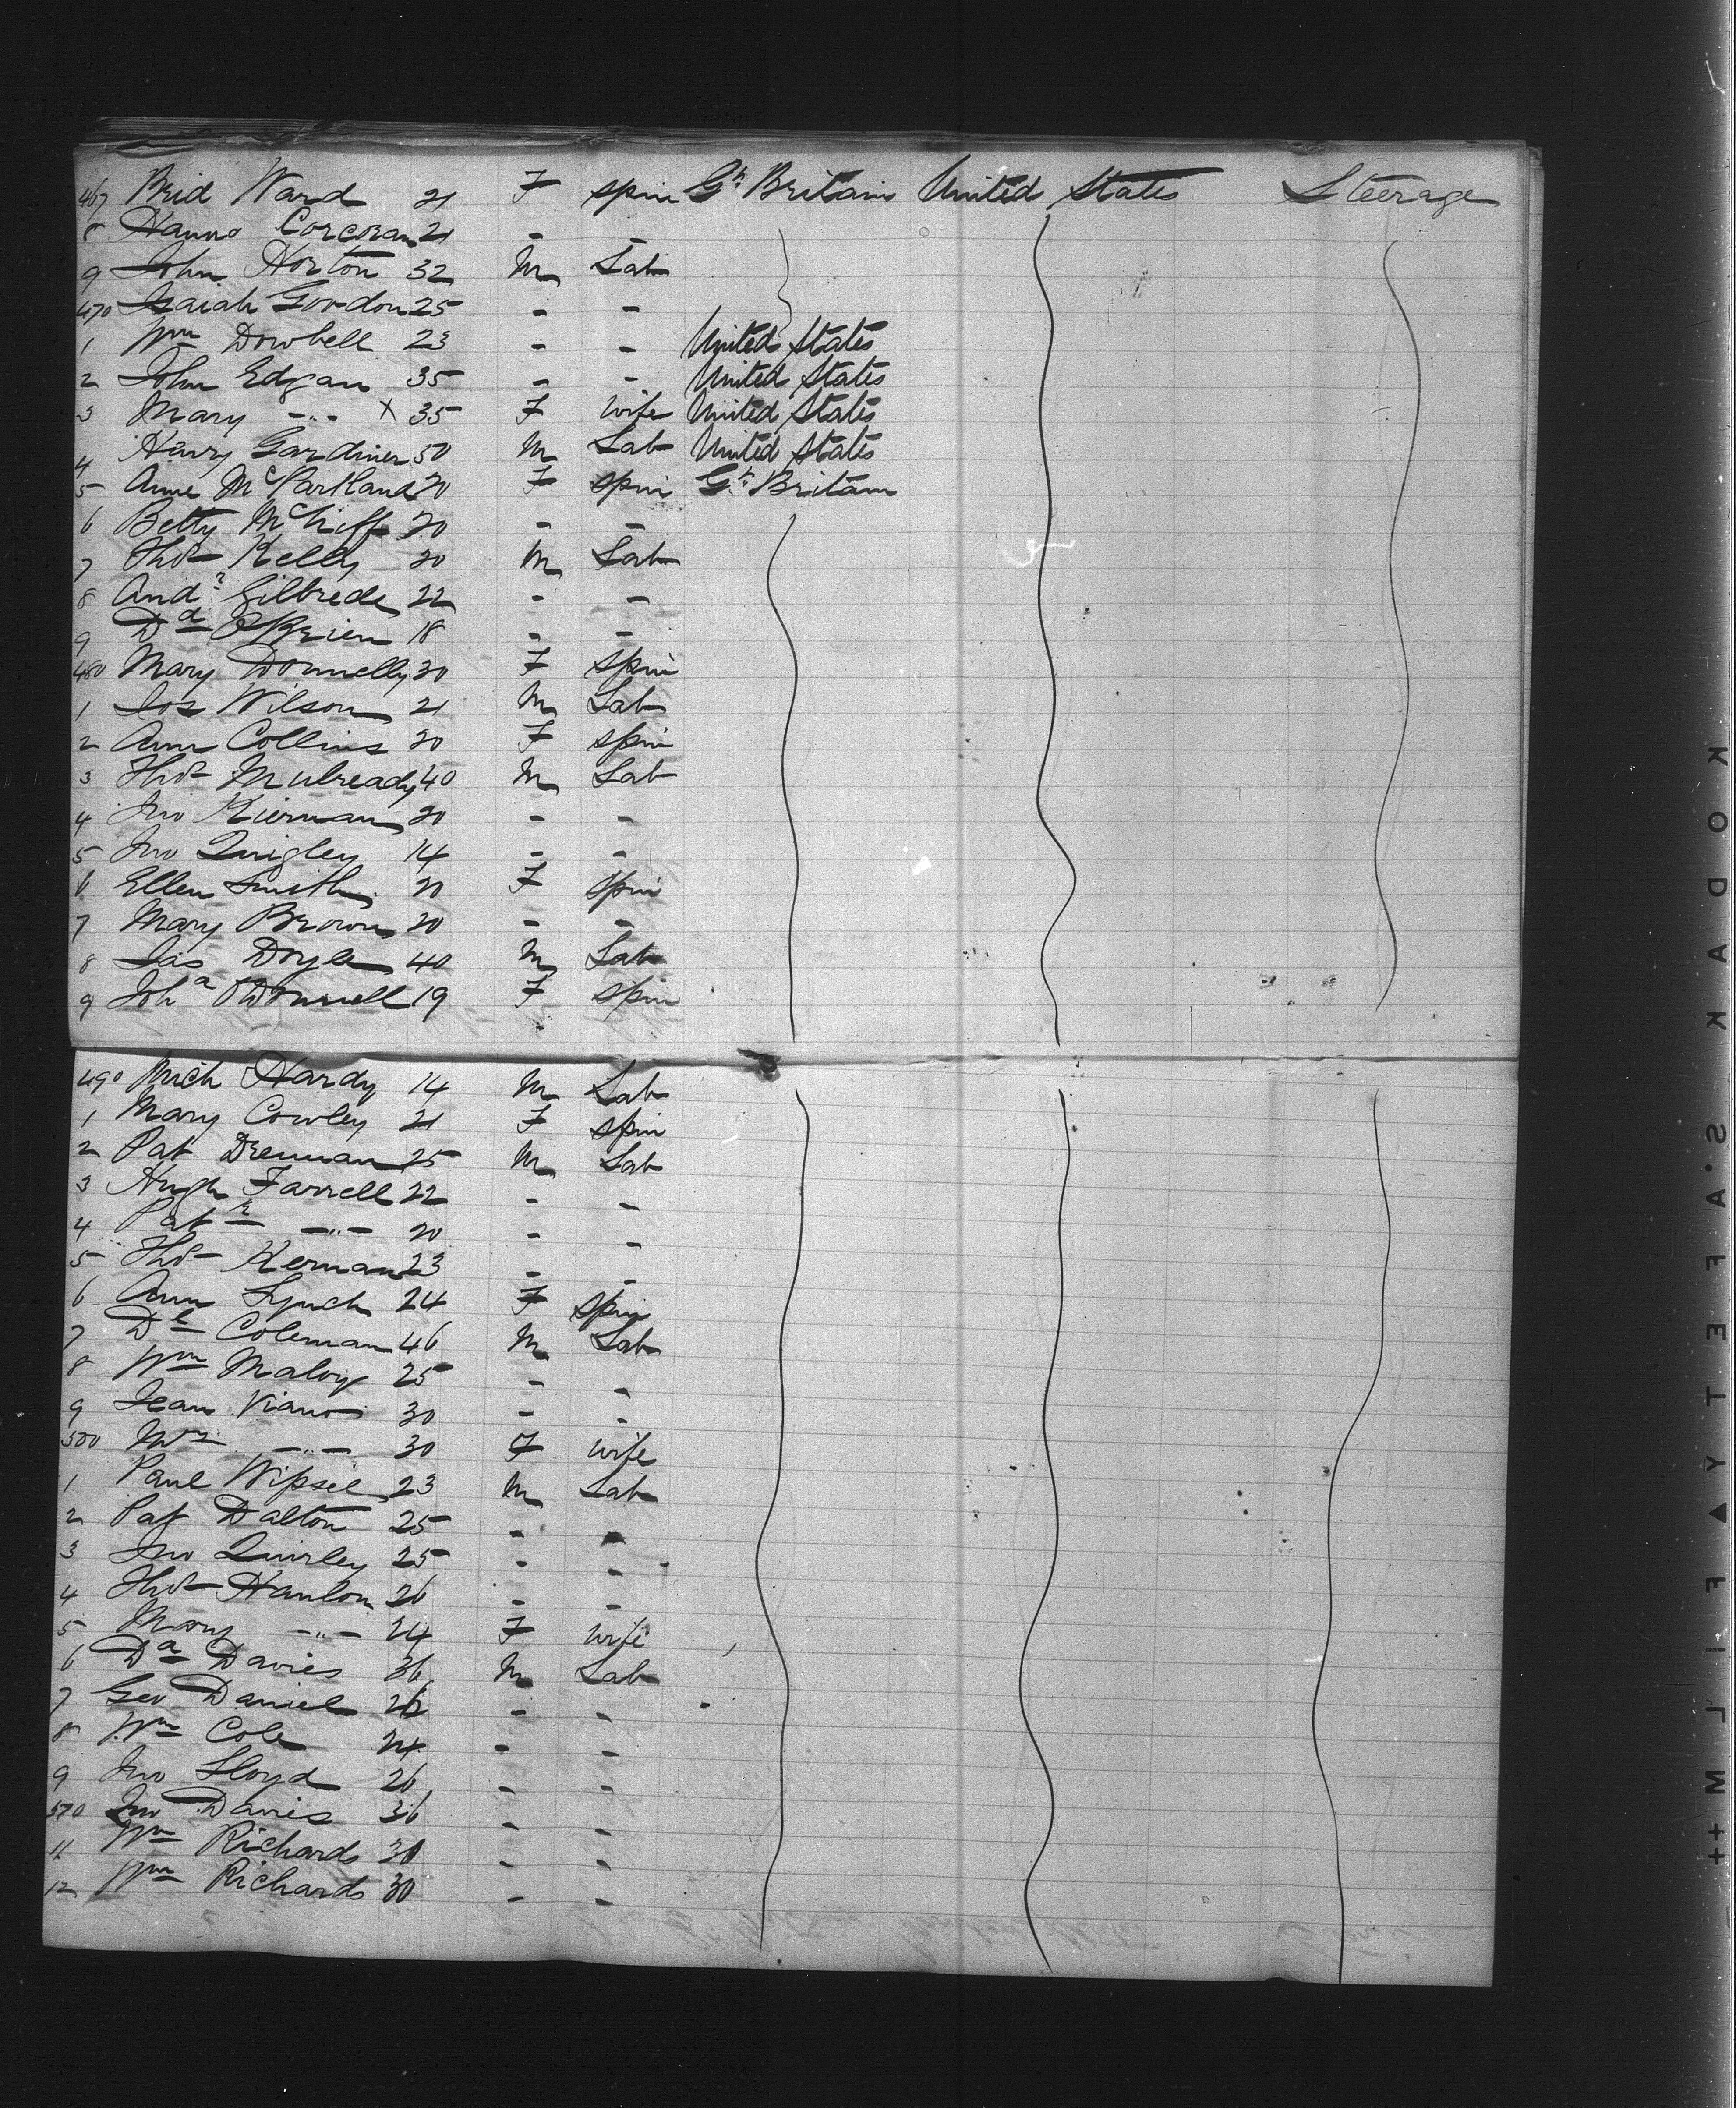 467 Brid Ward 21 F spin Gt Britain United States Steerage
8 Hanno Corcoran 21 - -
9 John Horton 32 M Lab
470 Isaiah Gordon 25 - -
1 Wm Dowbell 23 - - United States
2 John Edgar 35 - - United States
3 Mary -"- X 35 F wife United States
4 Harry Gardiner 50 M Lab United States
5 Anne McPartland 20 F spin Gt Britain
6 Betty 20 - -
7 Thos Kelly 20 M Lab
8 Andw Gilbrede 22 - -
9 Dd O'Brien 18 - -
480 Mary Donnelly 30 F spin
1 Jos Wilson 21 M Lab
2 Ann Collins 20 F spin
3 Thos Mulready 40 M Lab
4 Jno Kiernan 20 - -
5 Jno Quigley 14 - -
6 Ellen Smith 20 F spin
7 Mary Brown 20 - -
8 Jas Doyle 40 M Lab
9 Joha O'Donnell 19 F spin
490 Mich Hardy 14 M Lab
1 Mary Cowley 21 F spin
2 Pat Drennan 25 M Lab
3 Hugh Farrell 22 - -
4 Patk -"- 20 - -
5 Thos Kernan 23 - -
6 Ann Lynch 24 F spin
7 Dl Coleman 46 M Lab
8 Wm Maloy 25 - -
9 Jean 30 - -
500 Mrs -"- 30 F wife
1 Paul Wipsel 23 M Lab
2 Pat Dalton 25 - -
3 Jno Quirley 25 - -
4 Thos Hanlon 26 - -
5 Mary -"- 24 F wife
6 Da Davies 36 M Lab
7 Geo Daniel 26 - -
8 Wm Cole 24 - -
9 Jno Lloyd 26 - -
510 Jno Davies 36 - -
11 Wm Richards 30 - -
12 Wm Richards 30 - -
KODAK S.A.F.E.T.Y FILM